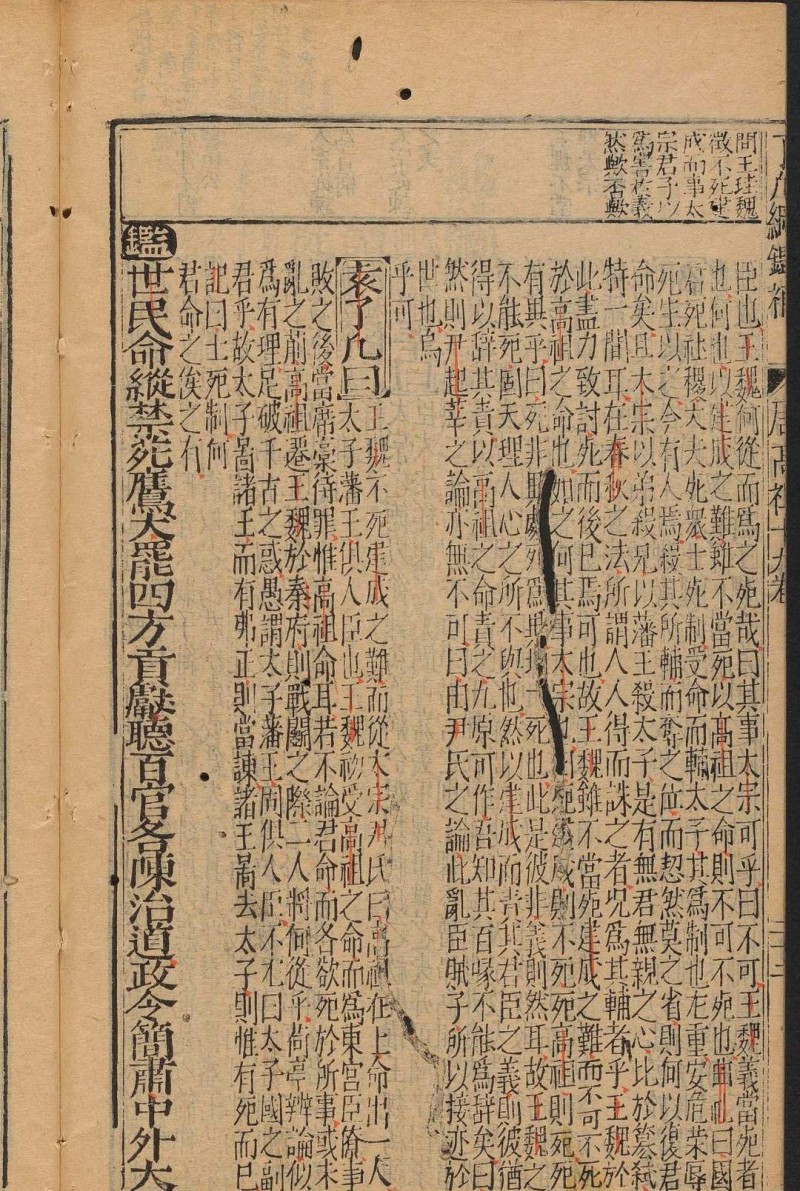 問王珪魏
徵不死建
成而事太
宗君子以
為害於義
然歟否歟
臣也王魏何從而為之死哉曰其事太宗可乎曰不可王魏義當死者
也何也以建成之難雖不當死以高祖之命則不可不死也曲礼曰國
君死社稷大夫死眾士死制受命而輔太子其為制也尤重安危榮辱
死生以之今有人焉殺其所輔而奪之位而恝然莫之省則何以復君
命矣且太宗以弟殺兄以藩王殺太子是有無君無親之心比於篡弒
特一間耳在春秋之法所謂人人得而誅之者况為其輔者乎王魏於
此盡力致討死而後已焉可也故王魏雖不當死建成之難而不可不死
於高祖之命也如之何其事太宗也死建成則不死死高祖則死死
有異乎曰死非其處死為無死也此是彼非義則然耳故王魏之
不能死固天理人心之所不與也然以建成而責其君臣之義則彼猶
得以辭其責以高祖之命責之九原可作吾知其百喙不能為辭矣曰
然則尹起莘之論亦無不可曰由尹氏之論此亂臣賊子所以接迹於
世也烏
乎可
袁了凡曰王魏不死建成之難而從太宗尹氏曰高祖在上命出一人
太子藩王俱人臣也王魏初受高祖之命而為東宮臣僚事
敗之後當席藁待罪惟高祖命耳若不論君命而各欲死於所事或未
亂之前高祖遷王魏於秦府則戰鬬之際二人將何從乎尚亭辨論似
為有理足破千古之惑愚謂太子藩王固俱人臣不尤曰太子國之副
君乎故太子暠諸王而有弗正則當諫諸王暠去太子則惟有死而已
記曰士死制何
君命之俟之有
鑑世民命縱禁苑鷹犬罷四方貢獻聽百官各陳治道政令簡肅中外大